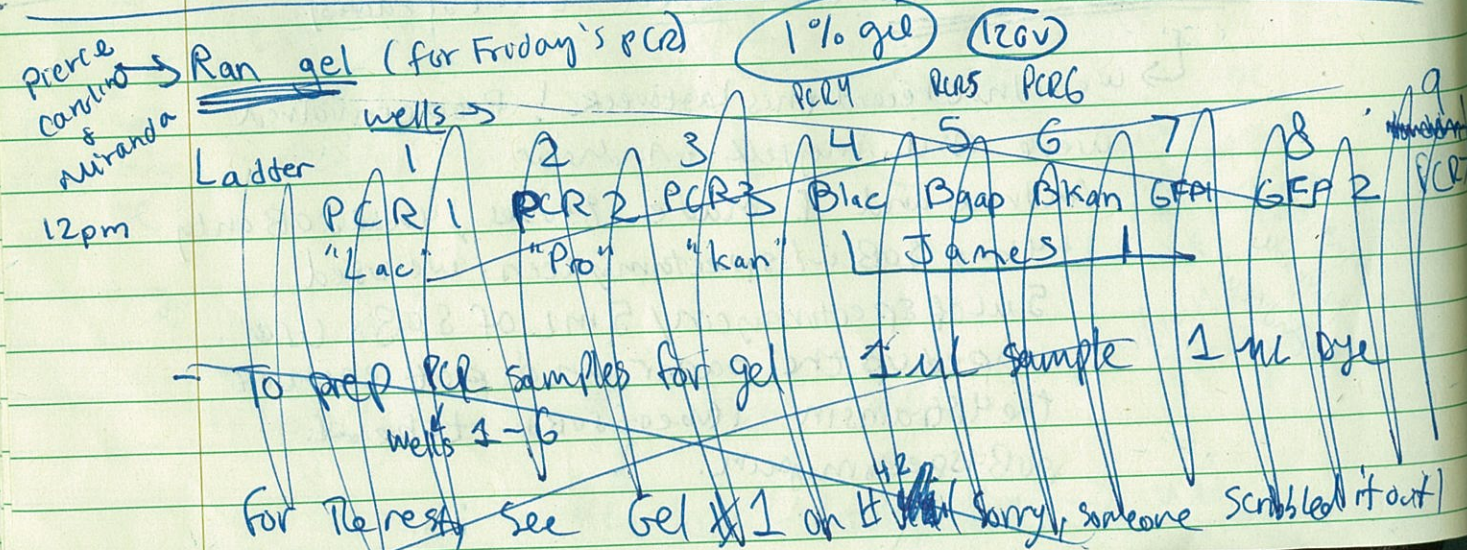 Pierce
Caroline
&
Miranda
Ran gel (for Friday's PCR) 1% gel 120V
PCR4 PCR5 PCR6
wells →
Ladder 1 2 3 4 5 6 7 8 9
12pm PCR 1 PCR 2 PCR 3 Blac Bgap Bkan GFP1 GFP 2 PCR7
"Lac" "Pro" "Kan" James
- To prep PCR samples for gel 1 uL sample 1 uL Dye
wells 1-6
42
For The rest, see Gel #1 on # Sorry, someone scribbled it out!